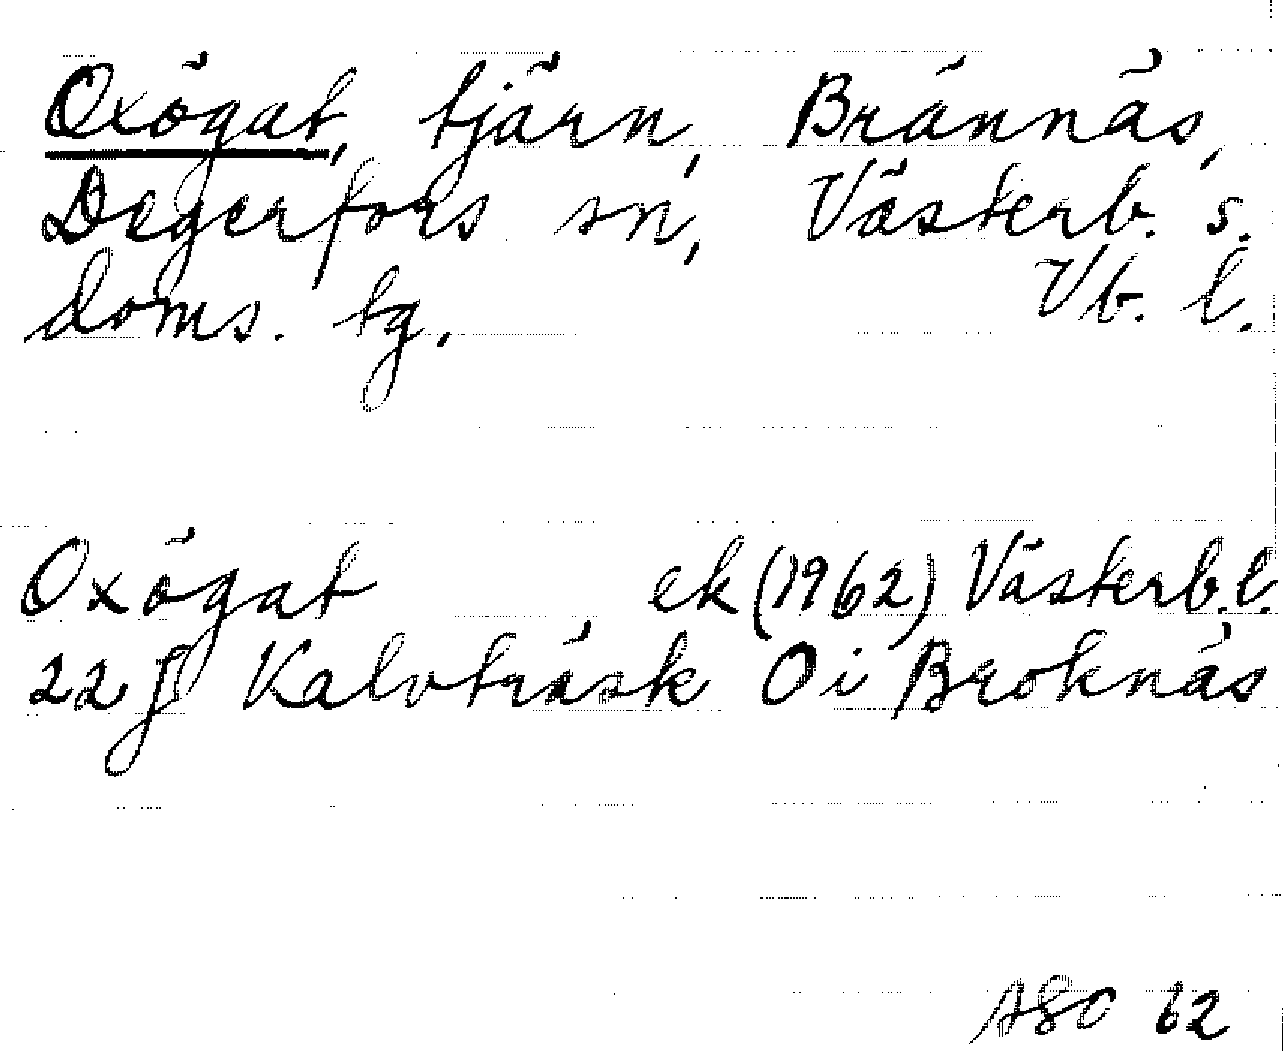 Oxögat, tjärn, Brännäs,
Degerfors sn, Västerb. s.
doms. tg. Vb. l.
Oxögat ek (1962) Västerb.l.
22 J Kalvträsk Oi Broknäs
ASO 62